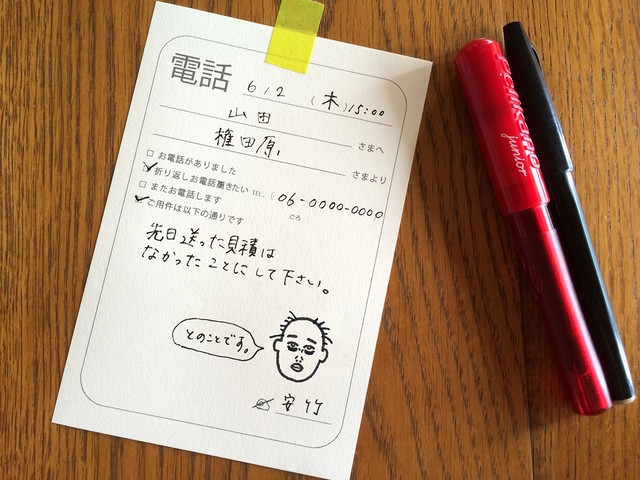 電話 6/2 (木) 15:00
山田 さまへ
権田原 さまより
□ お電話がありました
☑ 折り返しお電話戴きたい TEL. (06-0000-0000
□ またお電話します ごろ
☑ ご用件は以下の通りです
先日送った見積は
なかったことにして下さい。
とのことです。
安竹
Pelikano
junior